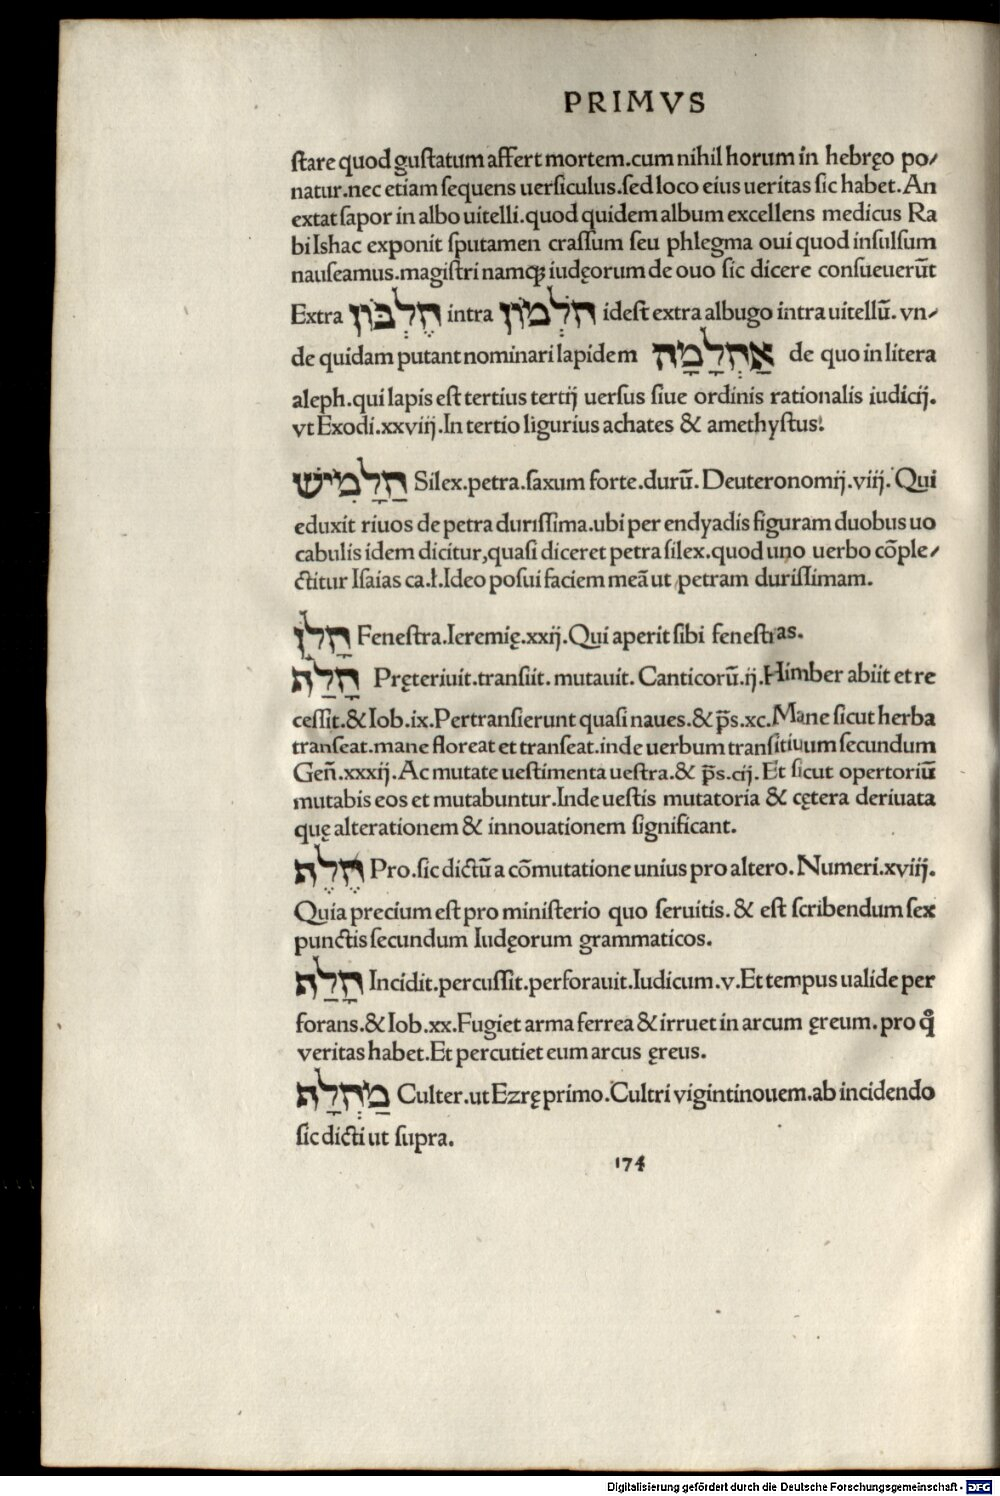 PRIMVS
ſtare quod guſtatum affert mortem.cum nihil horum in hebręo po/
natur.nec etiam ſequens uerſiculus.ſed loco eius ueritas ſic habet.An
extat ſapor in albo uitelli.quod quidem album excellens medicus Ra
bi Iſhac exponit ſputamen craſſum ſeu phlegma oui quod inſulſum
nauſeamus.magiſtri namqꝫ iudęorum de ouo ſic dicere conſueuerūt
Extra חֶלְבּוֹן intra חֹלְמוֹן ideſt extra albugo intra uitellū. vn/
de quidam putant nominari lapidem אַחְלָמָה de quo in litera
aleph.qui lapis eſt tertius tertij uerſus ſiue ordinis rationalis iudicij.
vt Exodi.xxviij.In tertio ligurius achates & amethyſtus.
חַלָמִישׁ Silex.petra.ſaxum forte.durū.Deuteronomij.viij.Qui
eduxit riuos de petra duriſſima.ubi per endyadis figuram duobus uo
cabulis idem dicitur,quaſi diceret petra ſilex.quod uno uerbo cōple/
ctitur Iſaias ca.ł.Ideo poſui faciem meā ut petram duriſſimam.
חַלֹן Feneſtra.Ieremię.xxij.Qui aperit ſibi feneſtras.
חָלַף Pręteriuit.tranſiit. mutauit. Canticorū.ij.Himber abiit et re
ceſſit.& Iob.ix.Pertranſierunt quaſi naues.& p̄s.xc.Mane ſicut herba
tranſeat.mane floreat et tranſeat.inde uerbum tranſitiuum ſecundum
Geñ.xxxij.Ac mutate ueſtimenta ueſtra.& p̄s.cij.Et ſicut opertoriū
mutabis eos et mutabuntur.Inde ueſtis mutatoria & cętera deriuata
quę alterationem & innouationem ſignificant.
חֵלֶף Pro.ſic dictū a cōmutatione unius pro altero.Numeri.xviij.
Quia precium eſt pro miniſterio quo ſeruitis.& eſt ſcribendum ſex
punctis ſecundum Iudęorum grammaticos.
חָלַף Incidit.percuſſit.perforauit.Iudicum.v.Et tempus ualide per
forans.& Iob.xx.Fugiet arma ferrea & irruet in arcum ęreum.pro q̊
veritas habet.Et percutiet eum arcus ęreus.
מַחְלָף Culter.ut Ezrę primo.Cultri vigintinouem.ab incidendo
ſic dicti ut ſupra.
174
Digitalisierung gefördert durch die Deutsche Forschungsgemeinschaft - DFG